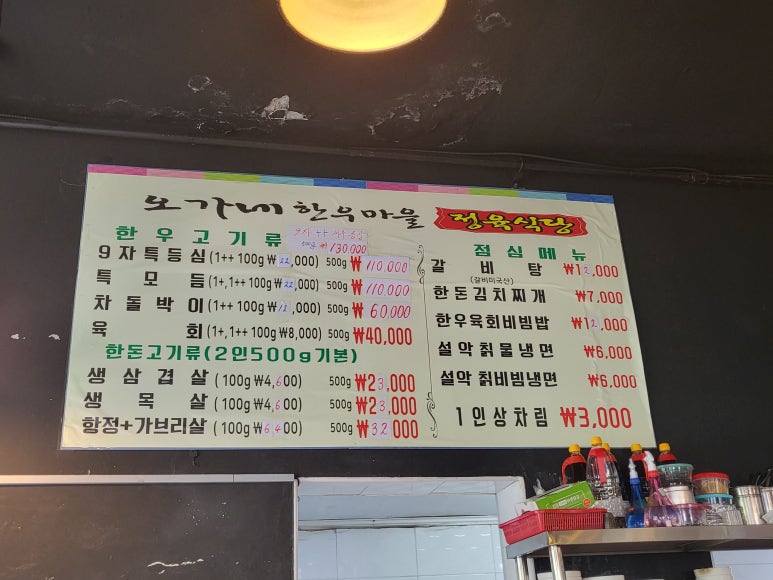 오가네 한우마을 정육식당
한우고기류
500g ₩130,000
9자특등심 (1++ 100g ₩22,000) 500g ₩110,000
특모듬 (1+,1++ 100g ₩22,000) 500g ₩110,000
차돌박이 (1++ 100g ₩12,000) 500g ₩60,000
육회 (1+,1++ 100g ₩8,000) 500g ₩40,000
한돈고기류(2인500g기본)
생삼겹살 (100g ₩4,600) 500g ₩23,000
생목살 (100g ₩4,600) 500g ₩23,000
항정+가브리살 (100g ₩6,400) 500g ₩32,000
점심메뉴
갈비탕 ₩12,000
(갈비미국산)
한돈김치찌개 ₩7,000
한우육회비빔밥 ₩12,000
설악 칡물냉면 ₩6,000
설악 칡비빔냉면 ₩6,000
1인상차림 ₩3,000